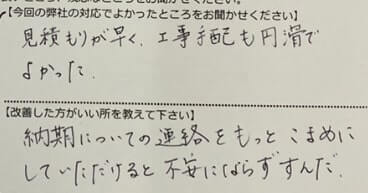 【今回の弊社の対応でよかったところをお聞かせください】
見積もりが早く、工事手配も円滑で
よかった。
【改善した方がいい所を教えて下さい】
納期についての連絡をもっとこまめに
していただけると不安にならずすんだ。